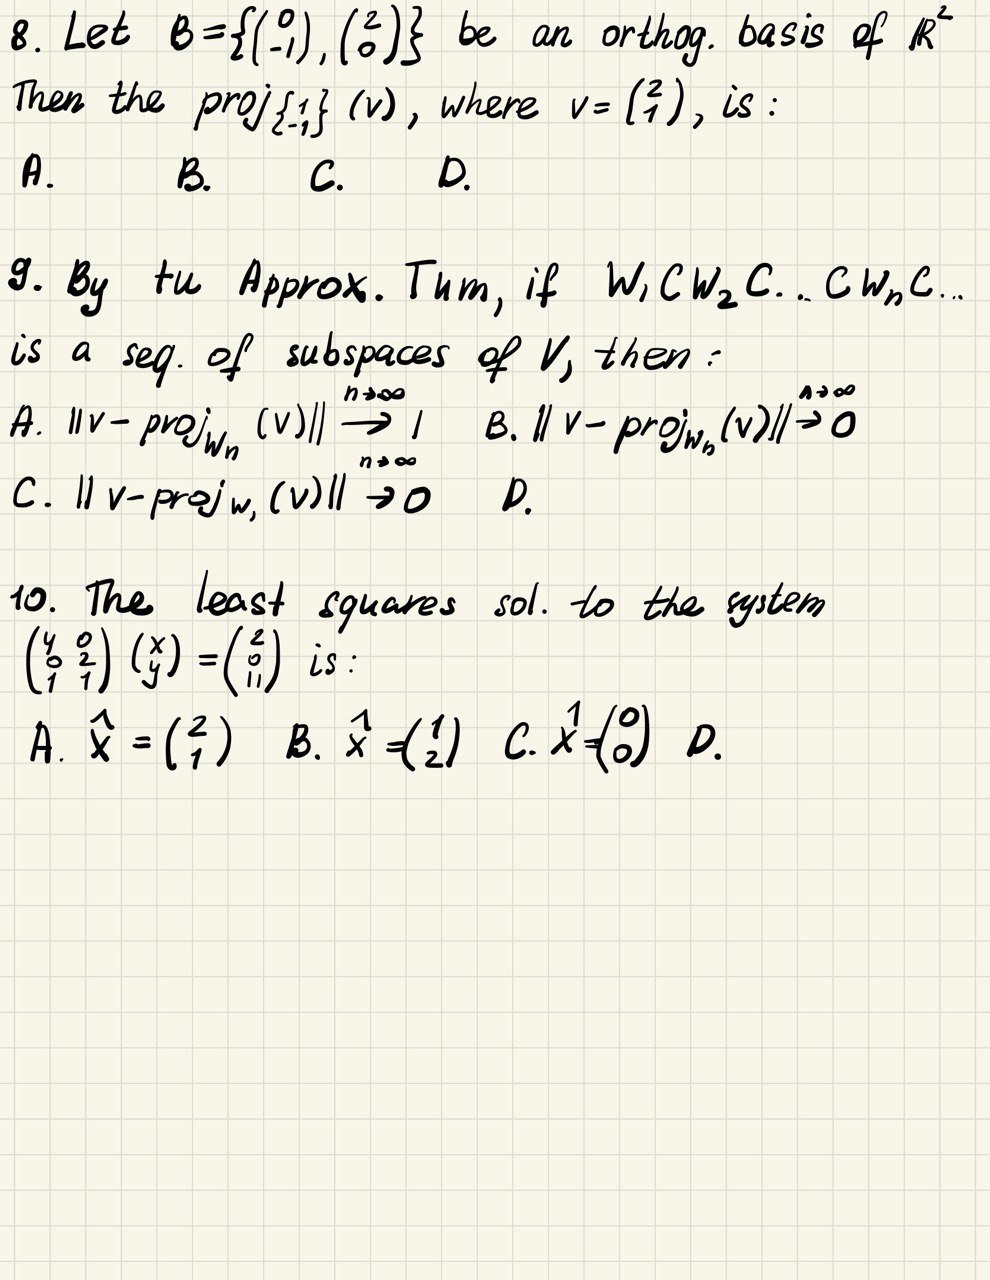 8. Let B = {(0 -1), (2 0)} be an orthog. basis of ℝ²
Then the proj{1 -1} (v), where v = (2 1), is :
A. B. C. D.
9. By tu Approx. Tum, if W₁ ⊂ W₂ ⊂ ... ⊂ Wₙ ⊂ ...
is a seq. of subspaces of V, then :
A. ||v - proj_Wₙ (v)|| →^{n→∞} 1 B. || v - proj_Wₙ (v)|| →^{n→∞} 0
C. || v - proj_W₁ (v)|| →^{n→∞} 0 D.
10. The least squares sol. to the system
(4 0 / 0 2 / 1 1) (x / y) = (2 / 0 / 11) is :
A. x̂ = (2 1) B. x̂ = (1 2) C. x̂ = (0 0) D.